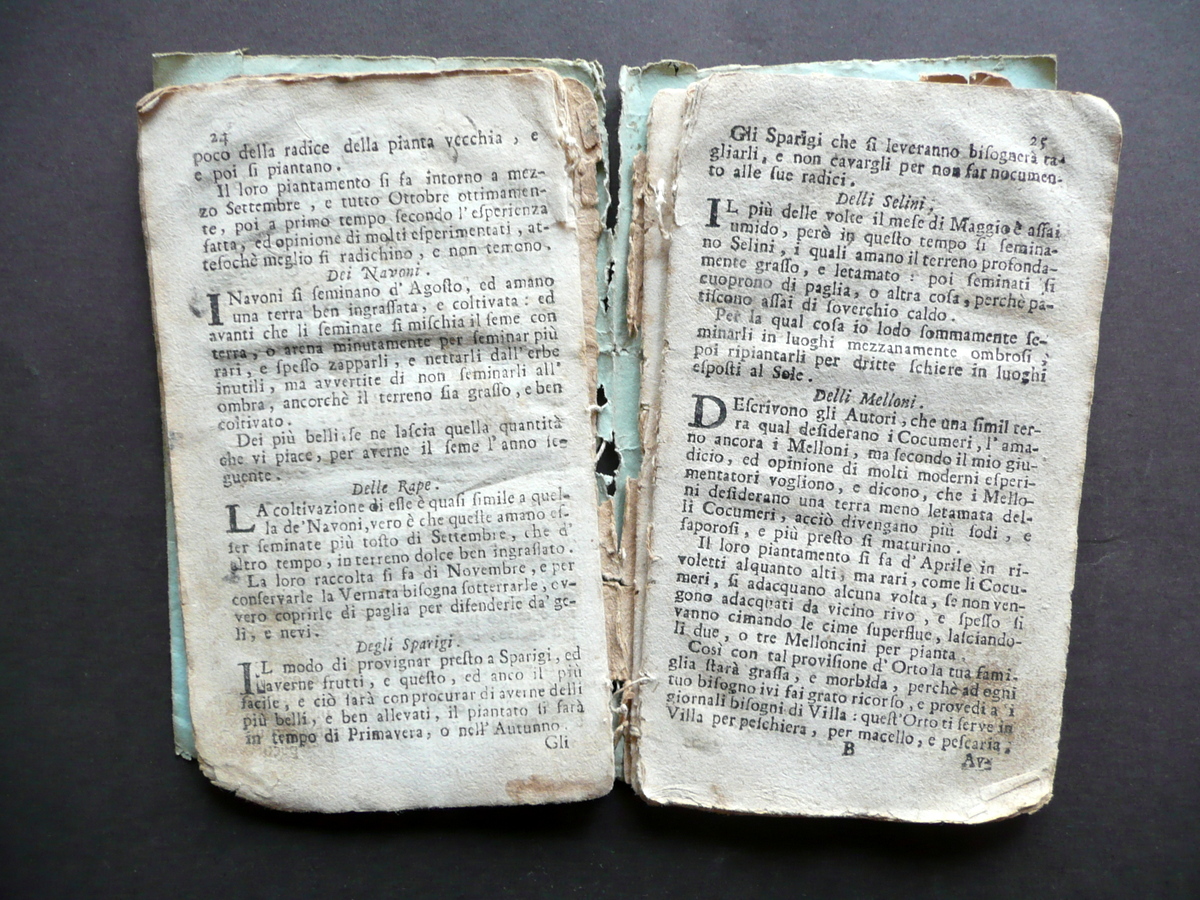 24
poco della radice della pianta vecchia, e
e poi si piantano.
Il loro piantamento si fa intorno a mez-
zo Settembre, e tutto Ottobre ottimamen-
te, poi a primo tempo secondo l'esperienza
fatta, ed opinione di molti esperimentati, at-
tesochè meglio si radichino, e non temono.
Dei Navoni.
I Navoni si seminano d'Agosto, ed amano
una terra ben ingrassata, e coltivata: ed
avanti che li seminate si mischia il seme con
terra, o arena minutamente per seminar più
rari, e spesso zapparli, e nettarli dall'erbe
inutili, ma avvertite di non seminarli all'
ombra, ancorchè il terreno sia grasso, e ben
coltivato.
Dei più belli se ne lascia quella quantità
che vi piace, per averne il seme l'anno se-
guente.
Delle Rape.
LA coltivazione di esse è quasi simile a quel-
la de' Navoni, vero è che queste amano es-
ser seminate più tosto di Settembre, che d'
altro tempo, in terreno dolce ben ingrassato.
La loro raccolta si fa di Novembre, e per
conservarle la Vernata bisogna sotterrarle, ov-
vero coprirle di paglia per difenderle da' ge-
li, e nevi.
Degli Sparigi.
IL modo di provignar presto a Sparigi, ed
averne frutti, e questo, ed anco il più
facile, e ciò sarà con procurar di averne delli
più belli, e ben allevati, il piantato si farà
in tempo di Primavera, o nell'Autunno.
Gli
25
Gli Sparigi che si leveranno bisognerà ta-
gliarli, e non cavargli per non far nocumen-
to alle sue radici.
Delli Selini.
IL più delle volte il mese di Maggio è assai
umido, però in questo tempo si semina-
no Selini, i quali amano il terreno profonda-
mente grasso, e letamato: poi seminati si
cuoprono di paglia, o altra cosa, perchè pa-
tiscono assai di soverchio caldo.
Per la qual cosa io lodo sommamente se-
minarli in luoghi mezzanamente ombrosi,
poi ripiantarli per dritte schiere in luoghi
esposti al Sole.
Delli Melloni.
DEscrivono gli Autori, che una simil ter-
ra qual desiderano i Cocumeri, l'ama-
no ancora i Melloni, ma secondo il mio giu-
dicio, ed opinione di molti moderni esperi-
mentatori vogliono, e dicono, che i Mello-
ni desiderano una terra meno letamata del-
li Cocumeri, acciò divengano più sodi, e
saporosi, e più presto si maturino.
Il loro piantamento si fa d'Aprile in ri-
voletti alquanto alti, ma rari, come li Cocu-
meri, si adacquano alcuna volta, se non ven-
gono adacquati da vicino rivo, e spesso si
vanno cimando le cime superflue, lasciando-
li due, o tre Melloncini per pianta.
Così con tal provisione d'Orto la tua fami-
glia starà grassa, e morbida, perchè ad ogni
tuo bisogno ivi fai grato ricorso, e provedi a'i
giornali bisogni di Villa: quest'Orto ti serve in
Villa per peschiera, per macello, e pescaria.
B
Av-